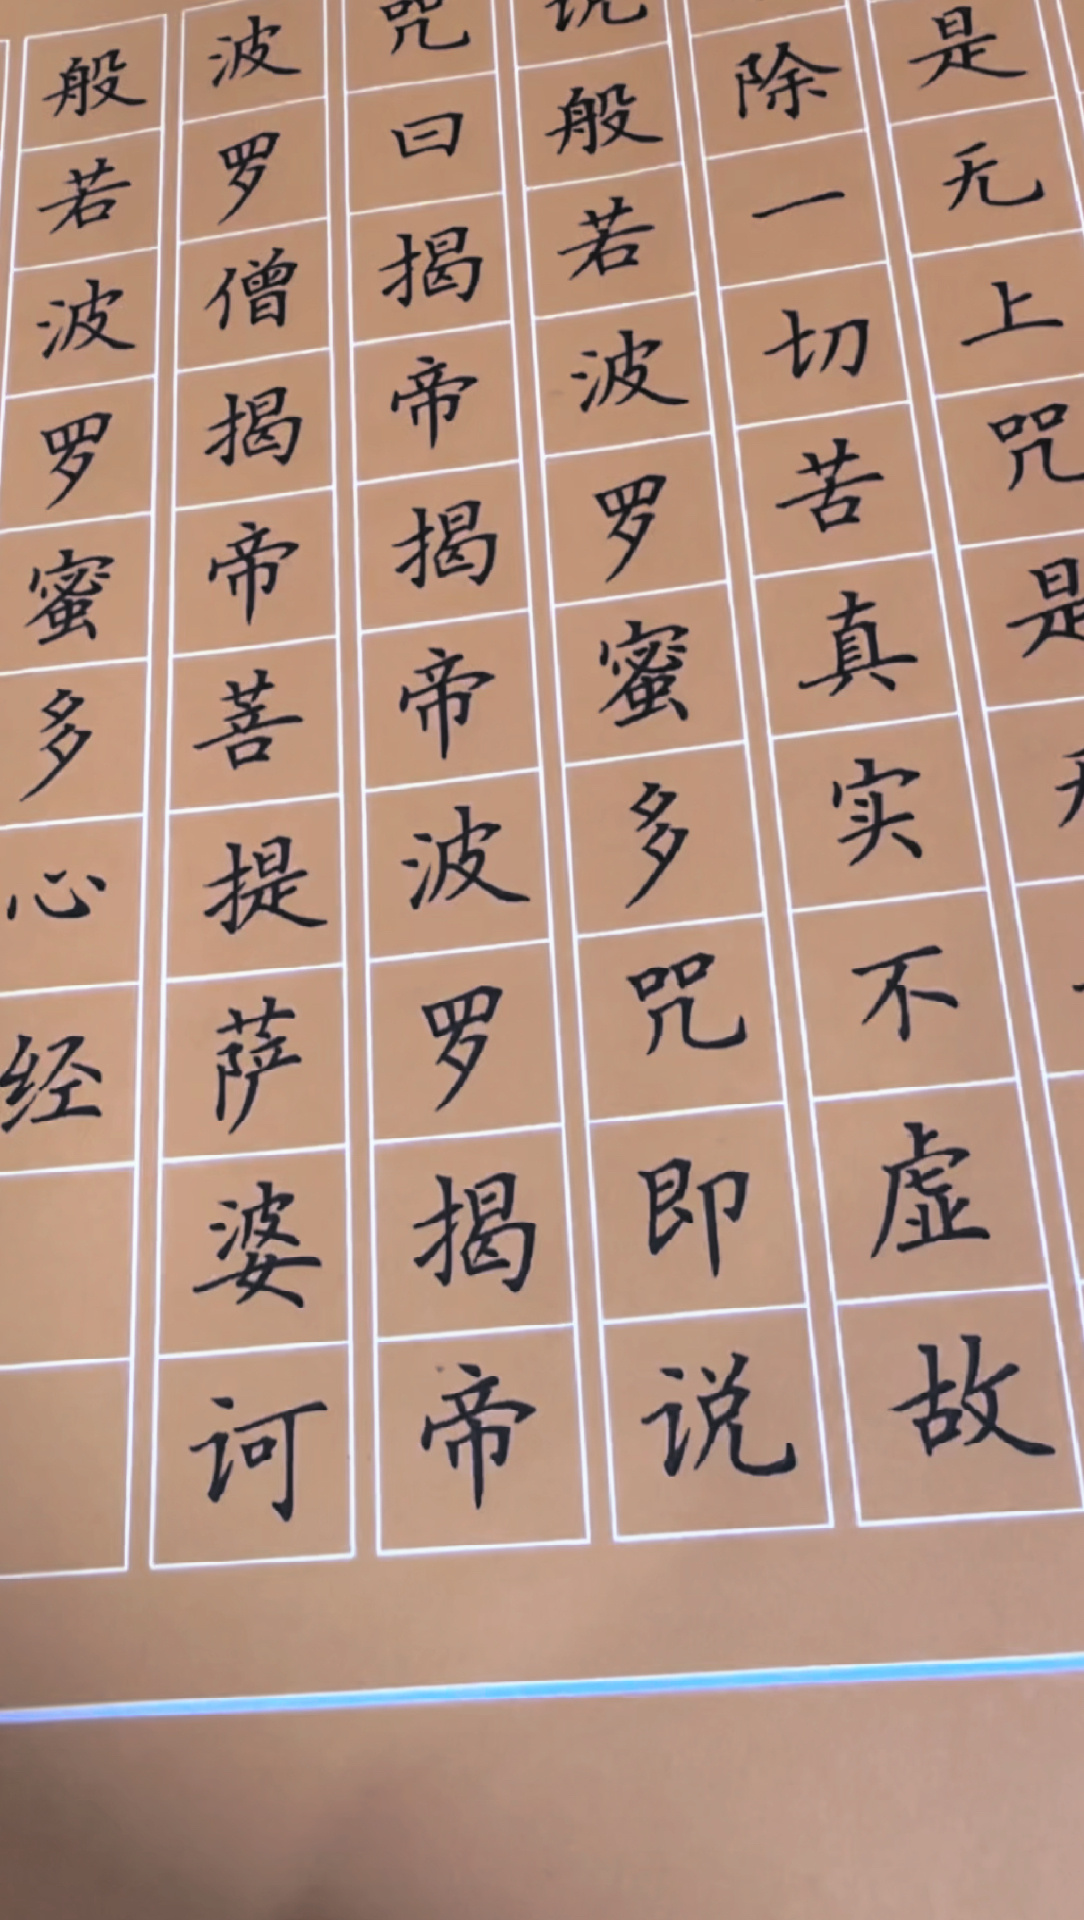 是无上咒是
除一切苦真实不虚故
说般若波罗蜜多咒即说
咒曰揭帝揭帝波罗揭帝
波罗僧揭帝菩提萨婆诃
般若波罗蜜多心经